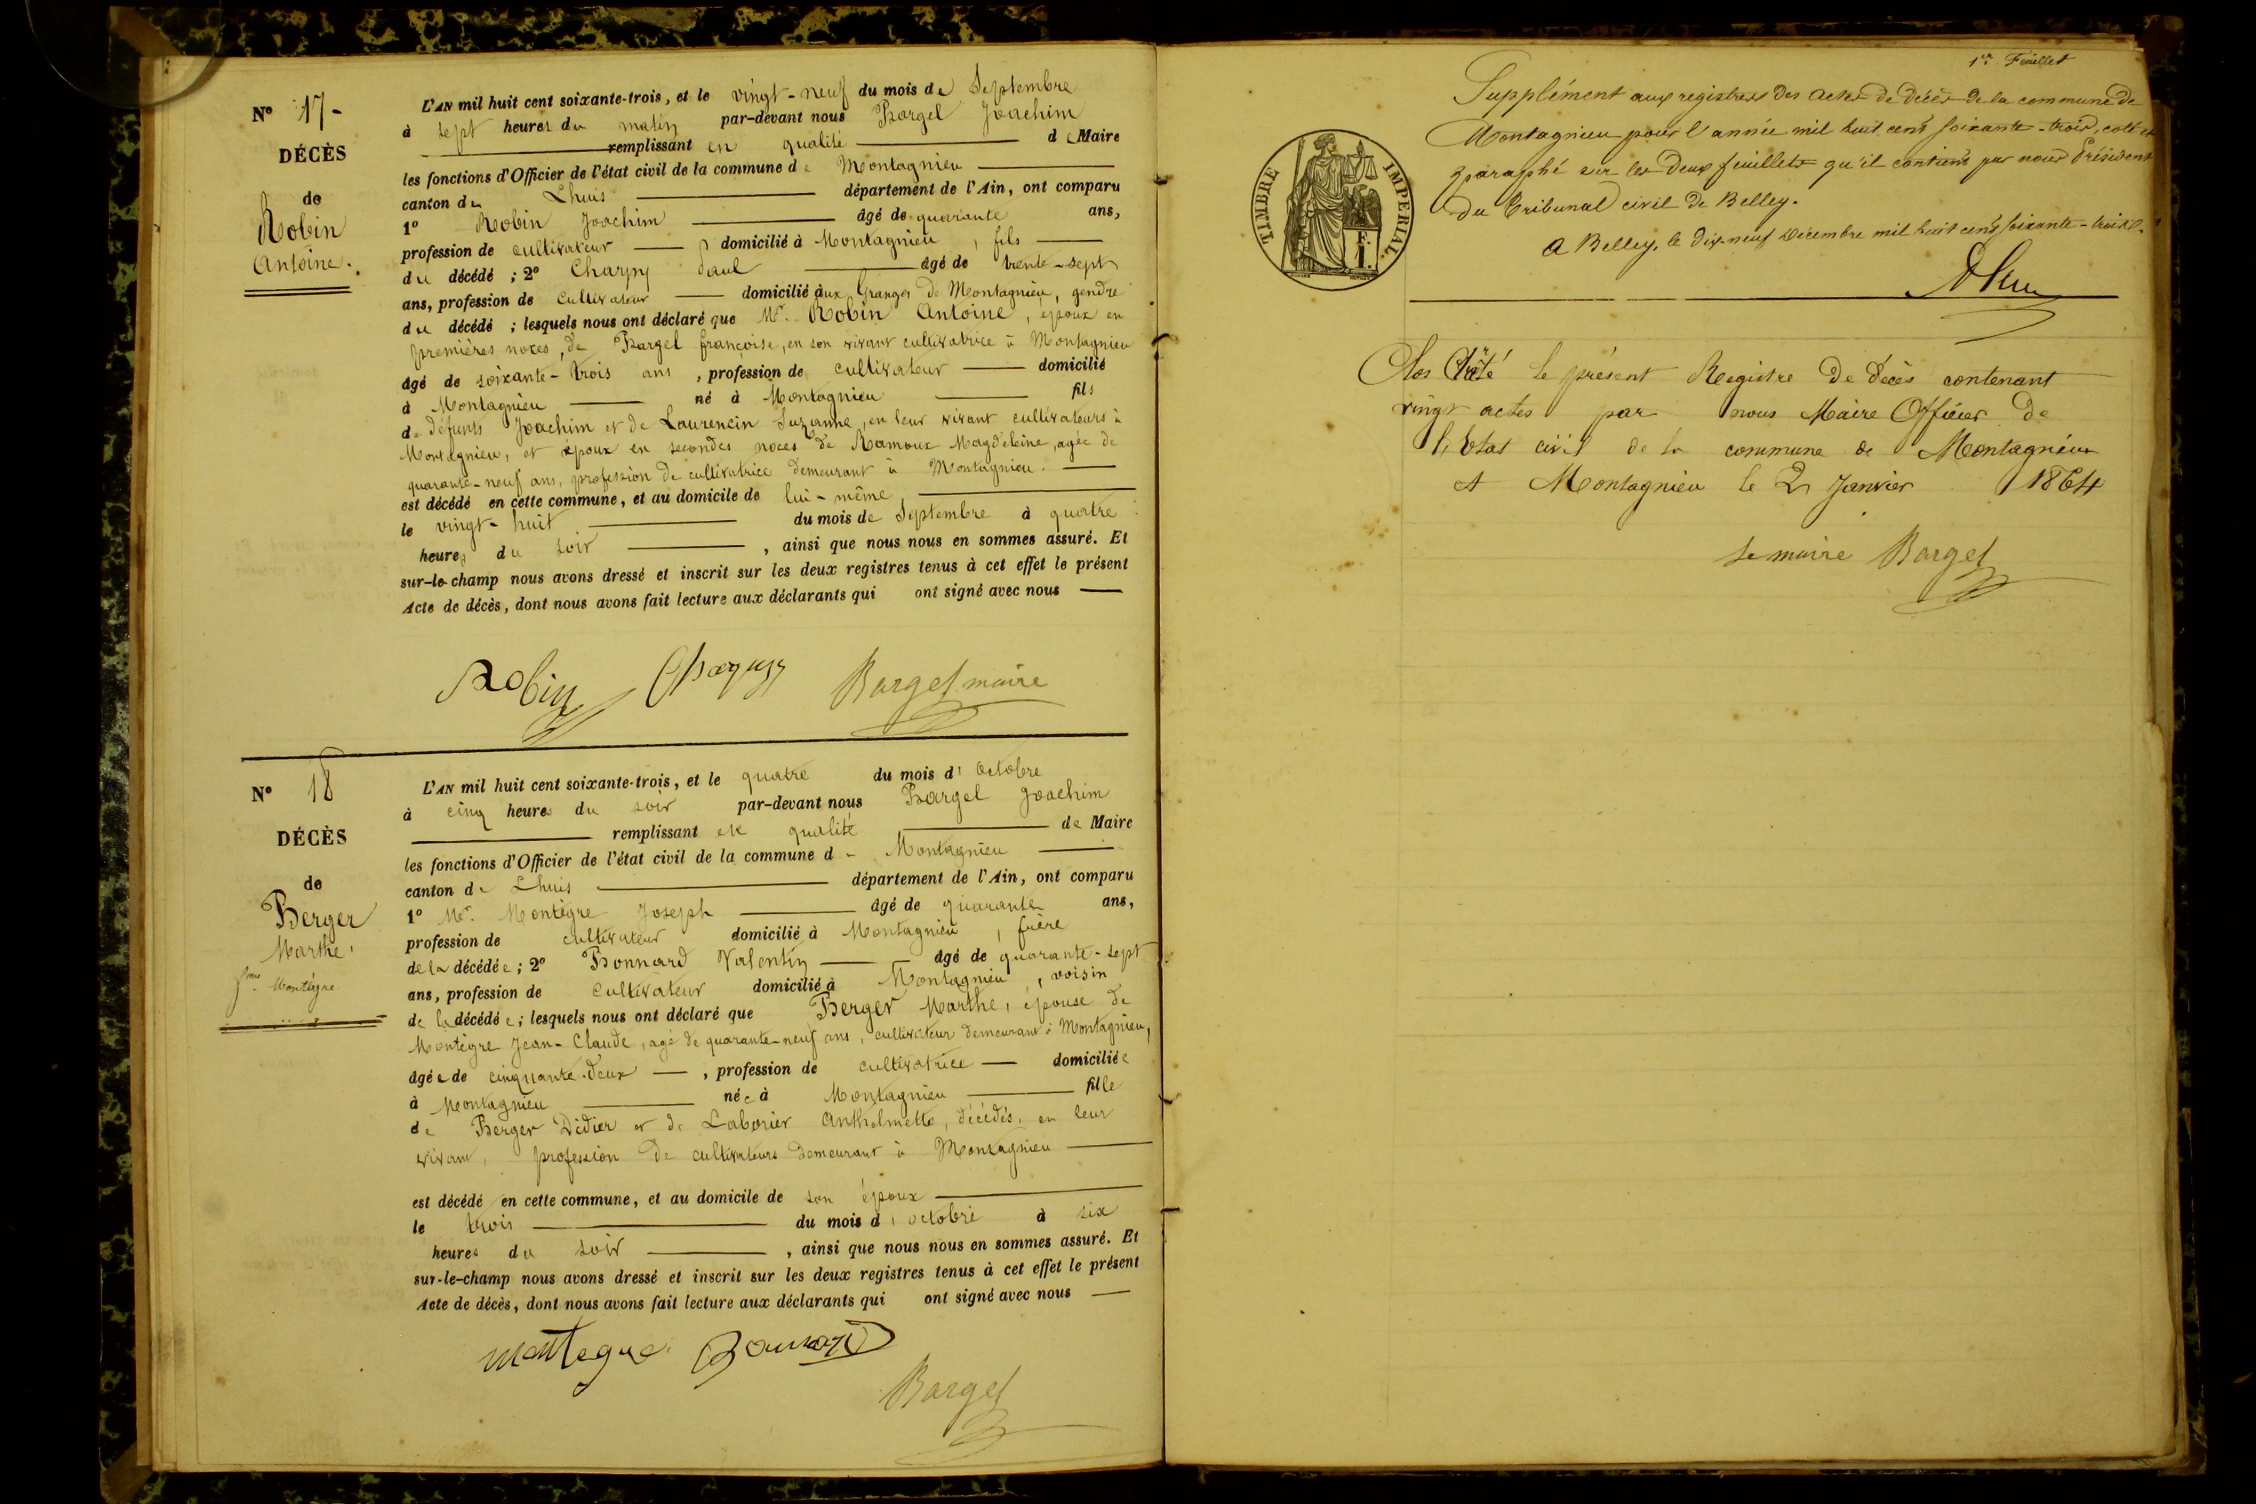 N° 17-
DÉCÈS
de
Robin
Antoine.
L'AN mil huit cent soixante-trois, et le vingt-neuf du mois de Septembre
à sept heures du matin par-devant nous Bargel Joachim
remplissant en qualité de Maire
les fonctions d'Officier de l'état civil de la commune de Montagnieu
canton de Lhuis département de l'Ain, ont comparu
1° Robin Joachim âgé de quarante ans,
profession de cultivateur domicilié à Montagnieu, fils
du décédé ; 2° Charpy Paul âgé de trente-sept
ans, profession de cultivateur domicilié aux Granges de Montagnieu, gendre
du décédé ; lesquels nous ont déclaré que Mr. Robin Antoine, époux en
premières noces, de Bargel françoise, en son vivant cultivatrice à Montagnieu
âgé de soixante-trois ans, profession de cultivateur domicilié
à Montagnieu né à Montagnieu fils
de défunts Joachim et de Laurencin Suzanne, en leur vivant cultivateurs à
Montagnieu, et époux en secondes noces de Ramoux Magdeleine, agée de
quarante-neuf ans, profession de cultivatrice demeurant à Montagnieu.
est décédé en cette commune, et au domicile de lui-même,
le vingt-huit du mois de Septembre à quatre
heures du soir, ainsi que nous nous en sommes assuré. Et
sur-le-champ nous avons dressé et inscrit sur les deux registres tenus à cet effet le présent
Acte de décès, dont nous avons fait lecture aux déclarants qui ont signé avec nous
Robin Charpy Bargel maire
N° 18
DÉCÈS
de
Berger
Marthe,
fme Montègre
L'AN mil huit cent soixante-trois, et le quatre du mois d'Octobre
à cinq heures du soir par-devant nous Bargel Joachim
remplissant en qualité de Maire
les fonctions d'Officier de l'état civil de la commune de Montagnieu
canton de Lhuis département de l'Ain, ont comparu
1° Mr. Montègre Joseph âgé de quarante ans,
profession de cultivateur domicilié à Montagnieu, frère
de la décédée ; 2° Bonnard Valentin âgé de quarante-sept
ans, profession de cultivateur domicilié à Montagnieu, voisin
de la décédée ; lesquels nous ont déclaré que Berger Marthe, épouse de
Montègre Jean-Claude, agé de quarante-neuf ans, cultivateur demeurant à Montagnieu,
âgée de cinquante-deux, profession de cultivatrice domiciliée
à Montagnieu née à Montagnieu fille
de Berger Didier et de Laborier Anthelmette, décédés, en leur
vivant, profession de cultivateurs demeurant à Montagnieu
est décédé en cette commune, et au domicile de son époux
le trois du mois d'octobre à six
heures du soir, ainsi que nous nous en sommes assuré. Et
sur-le-champ nous avons dressé et inscrit sur les deux registres tenus à cet effet le présent
Acte de décès, dont nous avons fait lecture aux déclarants qui ont signé avec nous
montegre Bonnard
Bargel
1er Feuillet
Supplément aux registres des actes de décès de la commune de
Montagnieu pour l'année mil huit cent soixante-trois, coté et
paraphé sur les deux feuillets qu'il contient par nous Président
du Tribunal civil de Belley.
A Belley, le dix-neuf Décembre mil huit cent soixante-trois.
TIMBRE IMPERIAL.
F.
1.
Clos Arrêté le présent Registre de décès contenant
vingt actes par nous Maire Officier de
l'Etat civil de la commune de Montagnieu
A Montagnieu le 2 Janvier 1864
Le maire Bargel